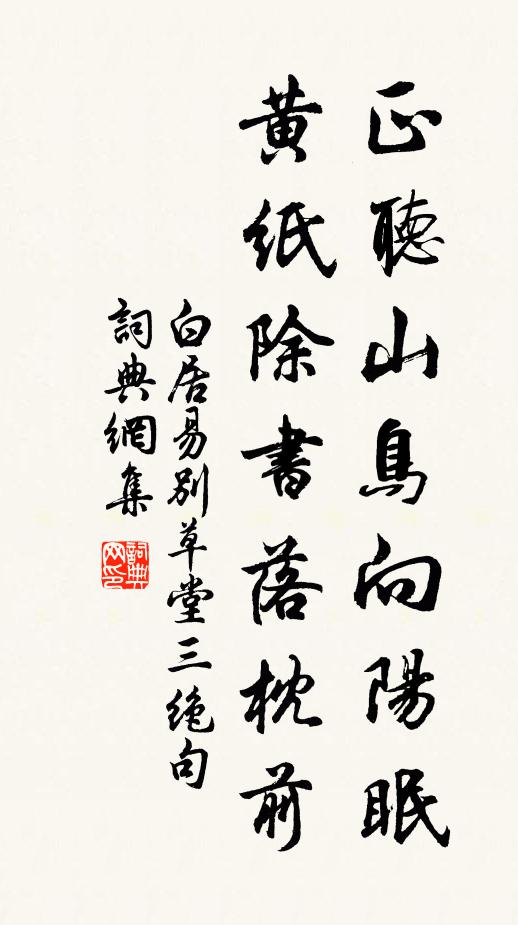 正聽山鳥向陽眠
黄紙除書落枕前
白居易別草堂三絶句
詞典網集
詞典网印